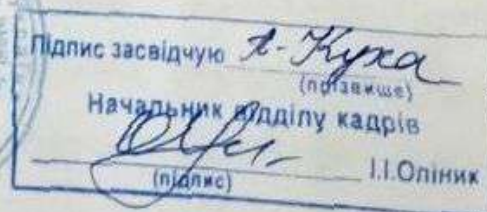 Підпис засвідчую А. Куха
(прізвище)
Начальник відділу кадрів
(підпис) І.І.Оліник